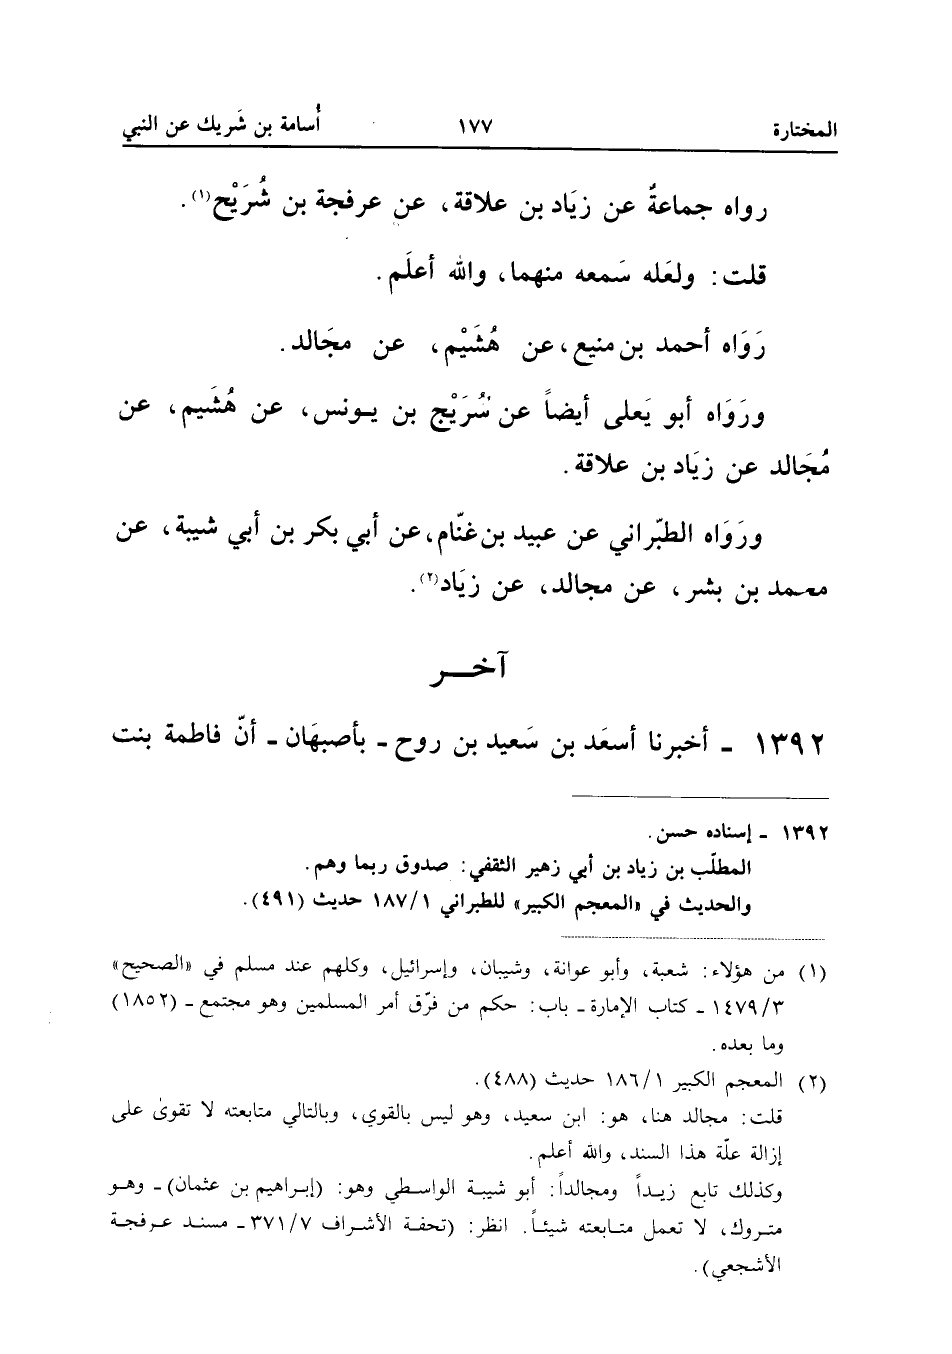 المختارة ١٧٧ أُسامة بن شَريك عن النبي
رواه جماعةٌ عن زيَاد بن علاقة، عن عرفجة بن شُرَيْح(١).
قلت: ولعَله سَمعه منهما، والله أعلَم.
رَوَاه أحمد بن منيع، عن هُشَيْم، عن مجَالد.
ورَوَاه أبو يَعلى أيضاً عن سُرَيْج بن يونس، عن هُشَيم، عن
مُجَالد عن زيَاد بن علاقة.
ورَوَاه الطبّراني عن عبيد بن غنّام، عن أبي بكر بن أبي شيبة، عن
محمد بن بشر، عن مجالد، عن زيَاد(٢).
آخر
١٣٩٢ - أخبرنا أسعَد بن سَعيد بن روح - بأصبهَان - أنّ فاطمة بنت
١٣٩٢ - إسناده حسن.
المطلّب بن زياد بن أبي زهير الثقفي: صدوق ربما وهم.
والحديث في «المعجم الكبير» للطبراني ١٨٧/١ حديث (٤٩١).
(١) من هؤلاء: شعبة، وأبو عوانة، وشيبان، وإسرائيل، وكلهم عند مسلم في «الصحيح»
١٤٧٩/٣ - كتاب الإمارة - باب: حكم من فرّق أمر المسلمين وهو مجتمع - (١٨٥٢)
وما بعده.
(٢) المعجم الكبير ١٨٦/١ حديث (٤٨٨).
قلت: مجالد هنا، هو: ابن سعيد، وهو ليس بالقوي، وبالتالي متابعته لا تقوىٰ على
إزالة علّة هذا السند، والله أعلم.
وكذلك تابع زيداً ومجالداً: أبو شيبة الواسطي وهو: (إبراهيم بن عثمان) - وهو
متروك، لا تعمل متابعته شيئاً. انظر: (تحفة الأشراف ٣٧١/٧ - مسند عرفجة
الأشجعي).